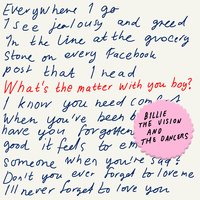 Everywhere I go
I see jealously and greed
In the line at the grocery
Store on every Facebook
post that I read
What's the matter with you boy?
I know you need com
When you've been b
have you forgotten
good it feels to em
someone when you're sa
Don't you ever forget to love me
I'll never forget to love you
BILLIE
THE VISION
AND
THE DANCERS